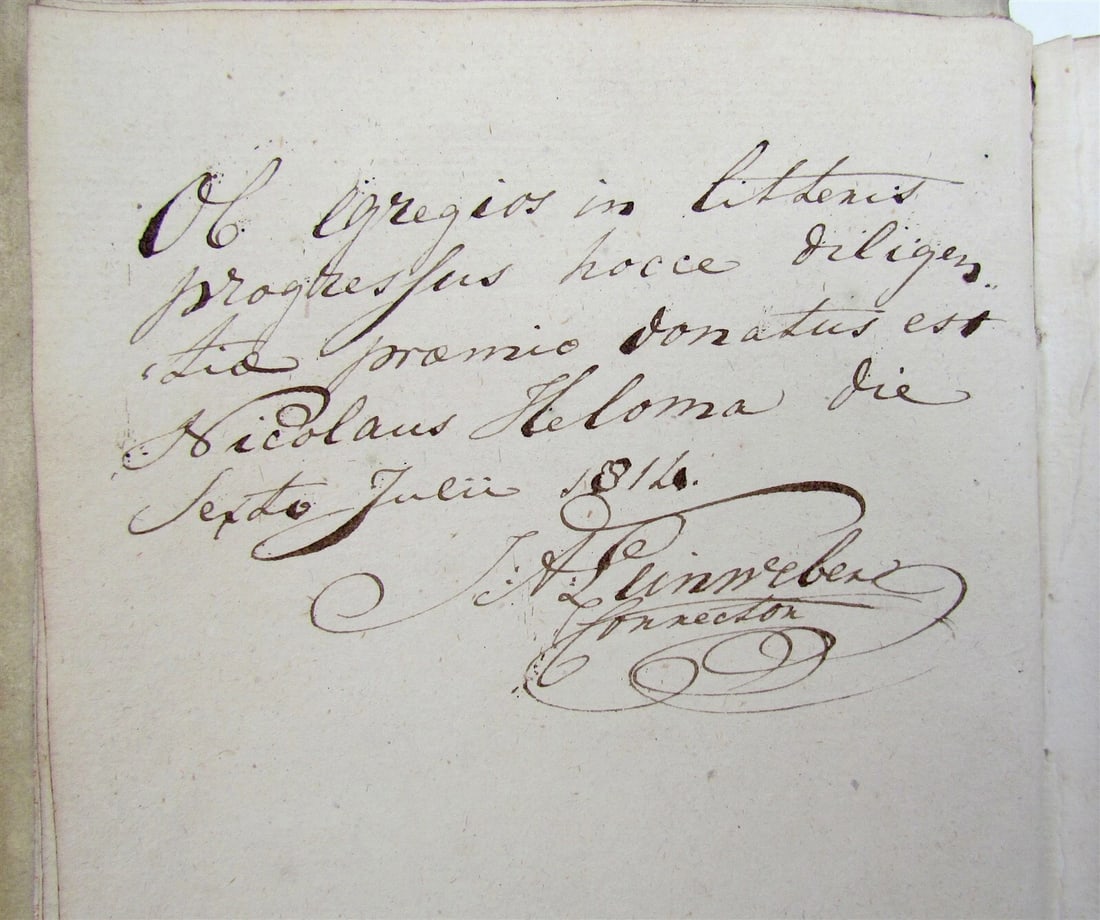 Ob egregios in litteris
progressus hocce diligen„
„tiæ præmio donatus est
Nicolaus Heloma die
Sexto Julii 1814.
J: A: Leinweber
Conrector